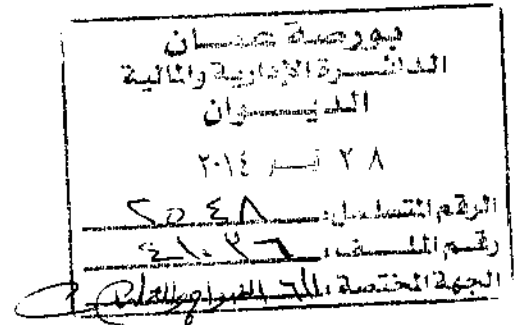 بورصة عمان
الدائرة الإدارية والمالية
الديوان
٢٨ نيسان ٢٠١٤
الرقم المتسلسل: ٢٥٤٨
رقم الملف: ٤١٠٢٦
الجهة المختصة: